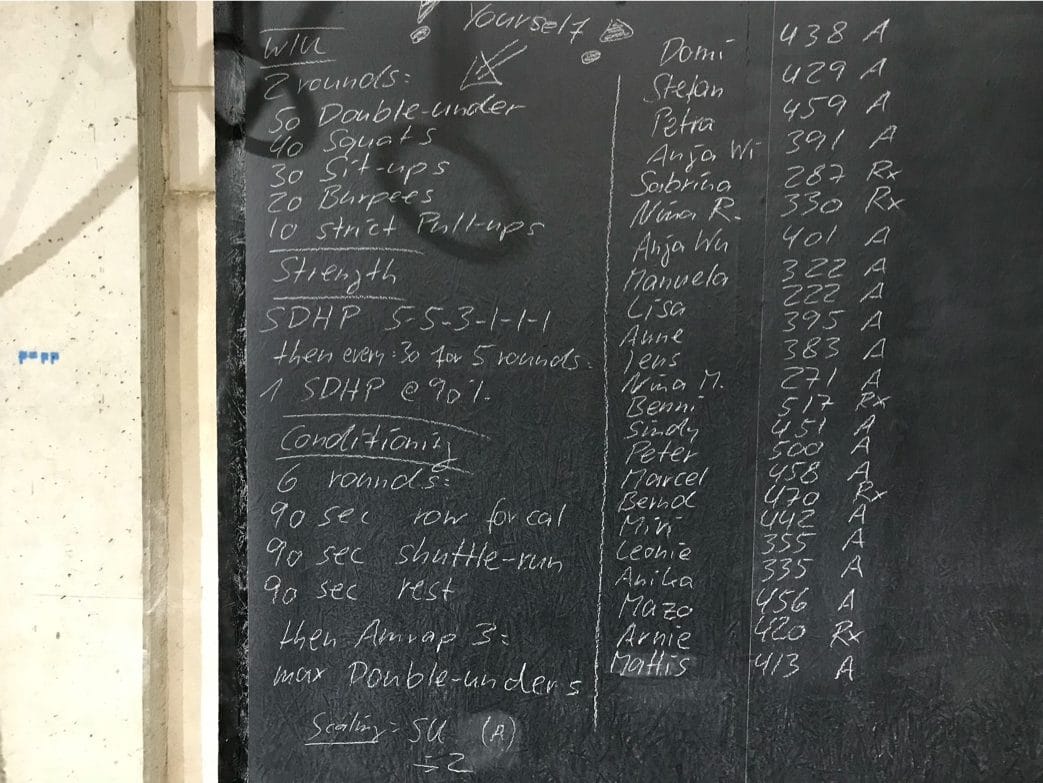 ! Yourself !
W/U
2 rounds:
50 Double-under
40 Squats
30 Sit-ups
20 Burpees
10 strict Pull-ups
Strength
SDHP 5-5-3-1-1-1
then every :30 for 5 rounds:
1 SDHP @ 90%.
Conditioning
6 rounds:
90 sec row for cal
90 sec shuttle-run
90 sec rest
then Amrap 3:
max Double-unders
Scaling: SU (A)
÷2
Domi 438 A
Stefan 429 A
Petra 459 A
Anja Wi 391 A
Sabrina 287 Rx
Nina R. 330 Rx
Anja Wu 401 A
Manuela 322 A
Lisa 222 A
Anne 395 A
Jens 383 A
Nina M. 271 A
Benni 517 Rx
Sindy 451 A
Peter 500 A
Marcel 458 A
Bernd 470 Rx
Miri 442 A
Leonie 355 A
Anika 335 A
Mazo 456 A
Arnie 420 Rx
Mattis 413 A